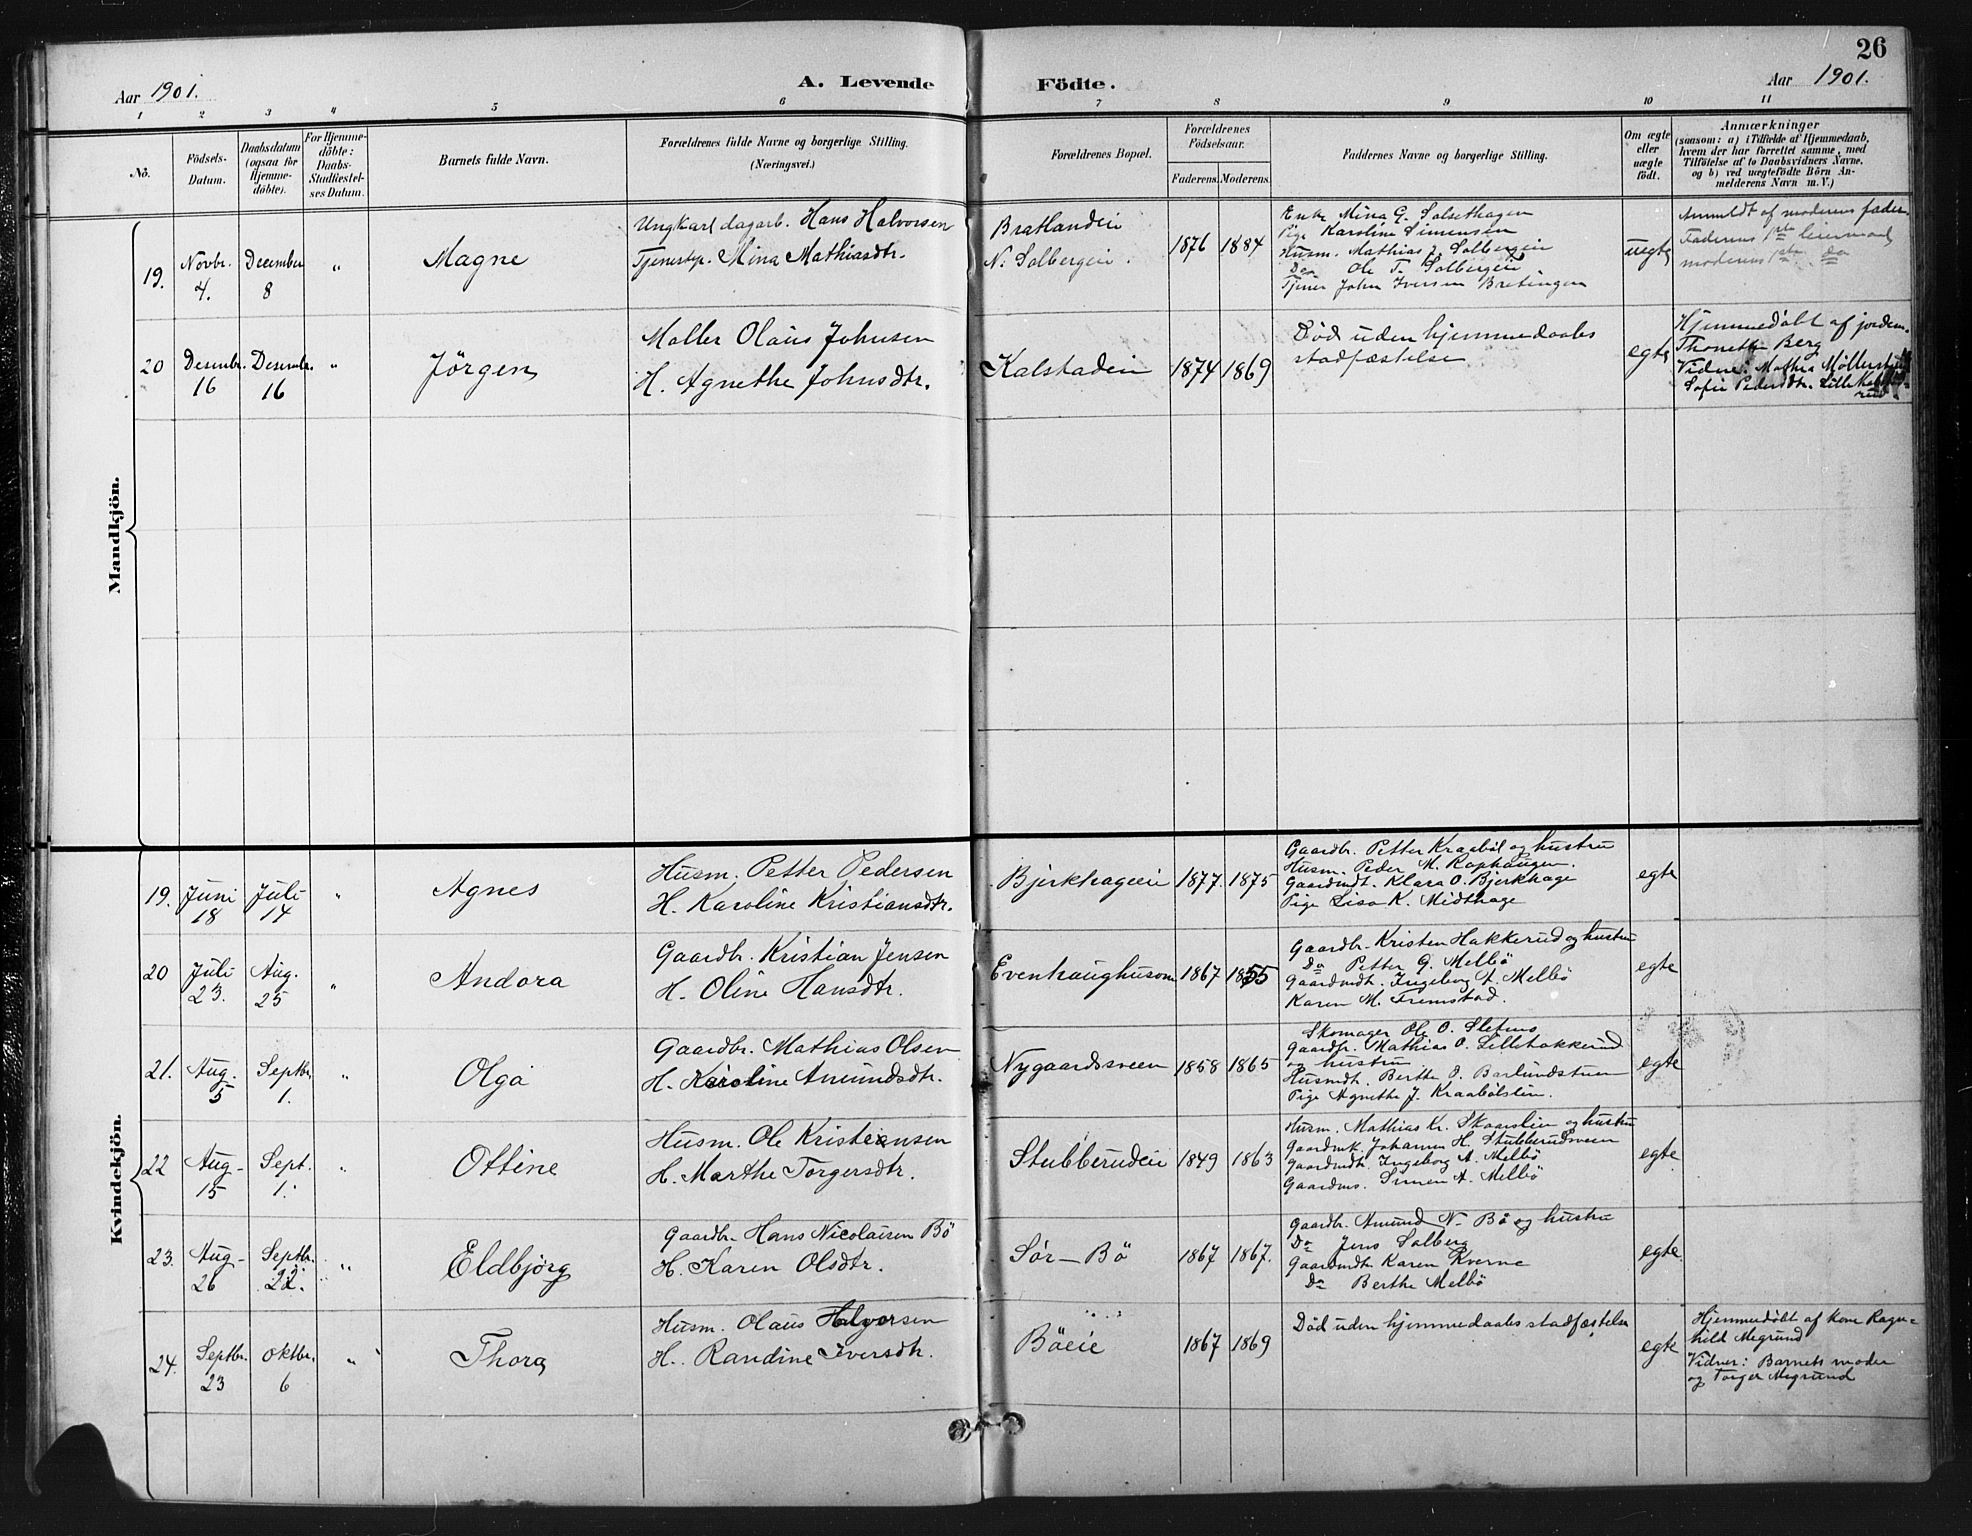 26
Aar 1901.
A. Levende Födte.
Aar 1901.
1 2 3 4 5 6 7 8 9 10 11
No.
Födsels-Datum.
Daabsdatum (ogsaa for Hjemme-döbte).
For Hjemme-döbte: Daabs-Stadfæstel-ses Datum.
Barnets fulde Navn.
Forældrenes fulde Navne og borgerlige Stilling.
(Næringsvei.)
Forældrenes Bopæl.
Forældrenes Födselsaar.
Faderens. Moderens.
Faddernes Navne og borgerlige Stilling.
Om ægte eller uægte födt.
Anmærkninger
(saasom: a) i Tilfælde af Hjemmedaab,
hvem der har forrettet samme, med
Tilföielse af to Daabsvidners Navne,
og b) ved uægtefödte Börn An-
melderens Navn m. V.)
Mandkjön.
19. Novbr. 4. December 8 " Magne
Ungkarl dagarb. Hans Halvorsen
Tjenestp. Mina Mathiasdtr.
Bratlandeie
N. Solbergeie.
1876 1884
Enke Mina G. Solsethagen
Pige Karoline Simensen
Husm. Mathias J. Solbergeie
Do Ole T. Solbergeie
Tjener John Iversen Bretingen
uegte
Anmeldt af moderens fader.
Faderens 1ste leiermaal
moderens 1ste do
20 Desembr. 16 Desembr. 16 " Jørgen
Møller Olaus Johnsen
H. Agnethe Johnsdtr.
Kalstadeie
1874 1869
Død uden hjemmedaabs
stadfæstelse
egte
Hjemmedøbt af jordm.
Thonette Berg
Vidne: Mathea Möllerstuen
Sofie Pedersdtr. Lille
Kvindekjön.
19. Juni 18 Juli 14 " Agnes
Husm. Petter Pedersen
H. Karoline Kristiansdtr.
Bjerkhageeie
1877. 1875
Gaardbr. Petter Kraabøl og hustru
Husm. Peder M. Raphaugen.
Gaardmdt. Klara O. Bjerkhage
Pige Lisa K. Midthage
egte
20 Juli 23. Aug. 25 " Andora
Gaardbr. Kristian Jensen
H. Oline Hansdtr.
Evenhaughusom
1867 1855
Gaardbr. Kristen Hakkerud og hustru
Do Petter G. Melbö
Gaardmdt. Ingeborg A. Melbö
Karen M. Fremstad.
egte
21. Aug. 5 Septbr. 1. " Olga
Gaardbr. Mathias Olsen
H. Karoline Amundsdtr.
Nygaardssveen
1858 1865
Skomager Ole O. Sletmo
Gaardbr. Mathias O. Lillehakkerud
og hustru
Husmdt. Berthe O. Barlundstuen
Pige Agnethe J. Kraabölslien.
egte
22 Aug. 15 Sept. 1. " Ottine
Husm. Ole Kristiansen
H. Marthe Torgersdtr.
Stubberudeie
1849 1863
Husm. Mathias Kr. Skaarslien og hustru
Gaardmk. Johannes H. Stubberudsveen
Gaardmdt. Ingeborg A. Melbö
Gaardms. Simen A. Melbö
egte
23. Aug. 26 Septbr. 22. " Eldbjørg
Gaardbr. Hans Nicolaisen Bö
H. Karen Olsdtr.
Sör-Bö
1867 1867.
Gaardbr. Amund N. Bö og hustru
Do Jens Solberg
Gaardmdt. Karen Kverne
Do Berthe Melbö
egte
24. Septbr. 23 Oktbr. 6 " Thora
Husm. Olaus Halvorsen
H. Randine Iversdtr.
Böeie
1867 1869
Död uden hjemmedaabs stadfæstelse
egte
Hjemmedøbt af kone Ragn-
hild Megrund
Vidner: Barnets moder
og Torger Megrund